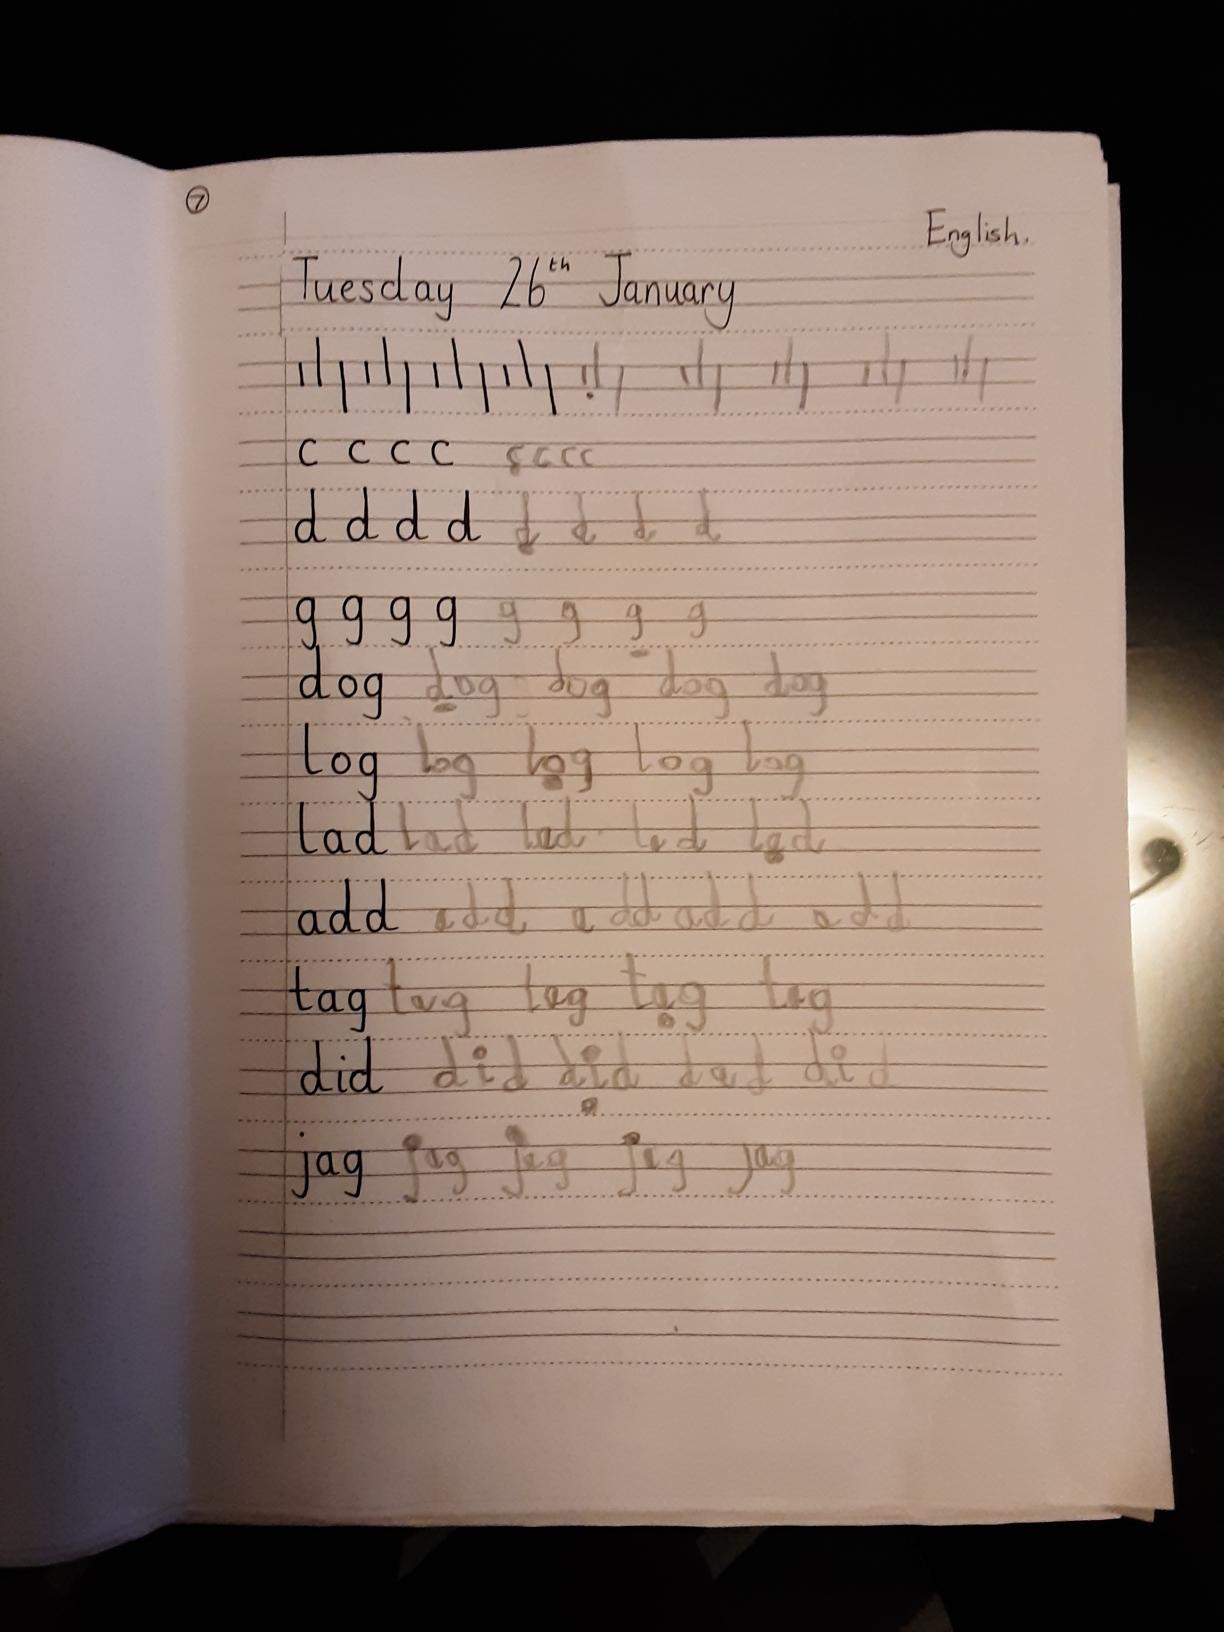 7
English.
Tuesday 26th January
c c c c c c c c
d d d d d d d d
g g g g g g g g
dog dog dog dog dog
log log log log log
lad lad lad lad lad
add add add add add
tag tag tag tag tag
did did did dad did
jag jag jag jag jag